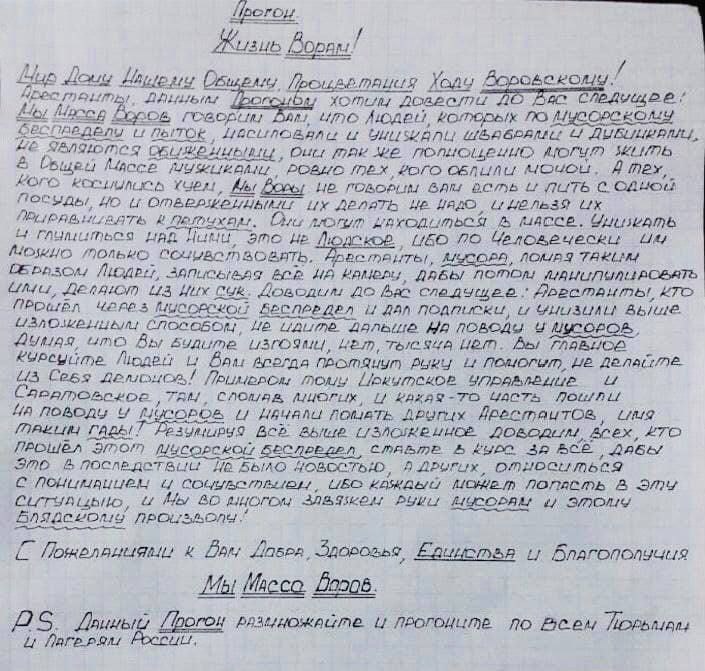 Прогон.
Жизнь Ворам!
Мир Дому Нашему Общему, Процветания Ходу Воровскому!
Арестанты, данным Прогоном хотим довести до Вас следущее:
Мы Масса Воров говорим Вам, что Людей, которых по мусорскому
беспределу и пыток, насиловали и унижали швабрами и дубинками,
не являются обиженными, они так же полноценно могут жить
в Общей Массе мужиками, ровно тех, кого облили мочой. А тех,
кого коснулись хуем, Мы Воры не говорим вам есть и пить с одной
посуды, но и отверженными их делать не надо, и нельзя их
приравнивать к петухам. Они могут находиться в массе. Унижать
и глумиться над Ними, это не Людское, ибо по Человечески им
можно только сочувствовать. Арестанты, мусора, ломая таким
образом Людей, записывая всё на камеру, дабы потом манипулировать
ими, делают из них сук. Доводим до Вас следущее: Арестанты, кто
прошёл через мусорской беспредел и дал подписки, и унизили выше
изложенным способом, не идите дальше на поводу у мусоров,
думая, что Вы будите изгоями, нет, тысяча нет. Вы главное
курсуйте Людей и Вам всегда протянут руку и помогут, не делайте
из Себя демонов! Примером тому Иркутское управление и
Саратовское, там, сломав многих, и какая-то часть пошли
на поводу у мусоров и начали ломать других Арестантов, имя
таким гады! Резумируя всё выше изложенное доводим, всех, кто
прошёл этот мусорской беспредел, ставте в курс за всё, дабы
это в последствии не было новостью, а других, относиться
с пониманием и сочувствием, ибо каждый может попасть в эту
ситуацыю, и Мы во многом завяжем руки мусорам и этому
блядскому произволу!
С Пожеланиями к Вам Добра, Здоровья, Единства и Благополучия
Мы Масса Воров.
P.S. Данный Прогон размножайте и прогоните по всем Тюрьмам
и Лагерям России.